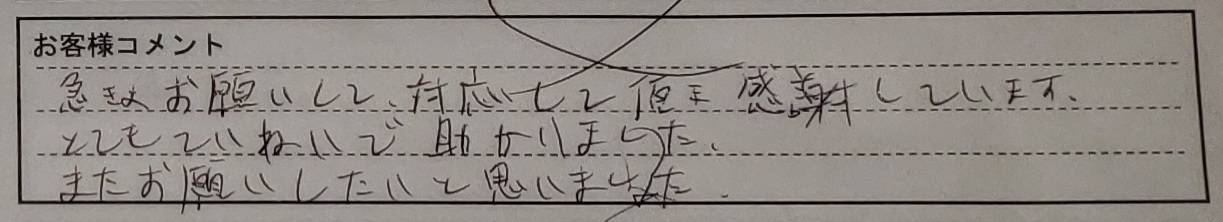 お客様コメント
急きょお願いして、対応して頂き感謝しています。
とてもていねいで助かりました。
またお願いしたいと思いました。